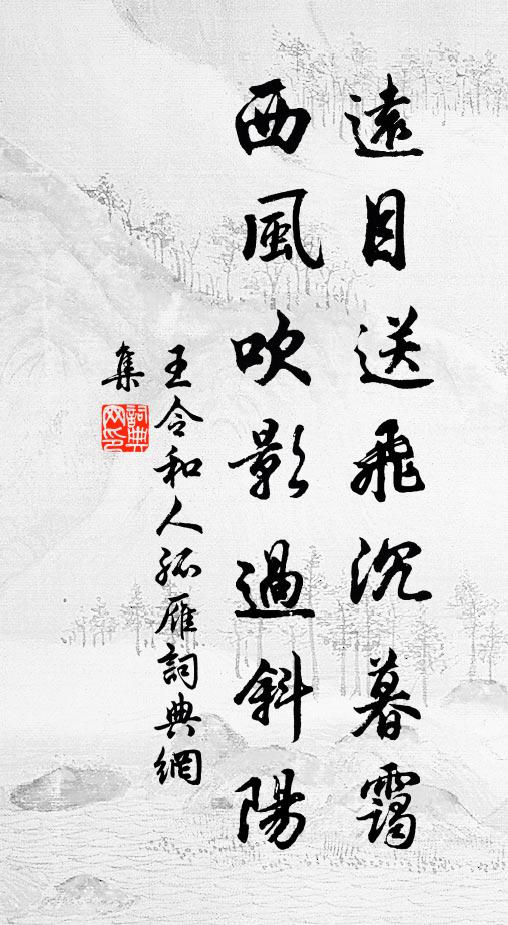 遠目送飛沉暮靄
西風吹影過斜陽
王令和人孤雁詞典網
集
詞典
网印